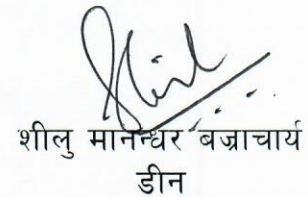 शीलु मानन्धर बज्राचार्य
डीन